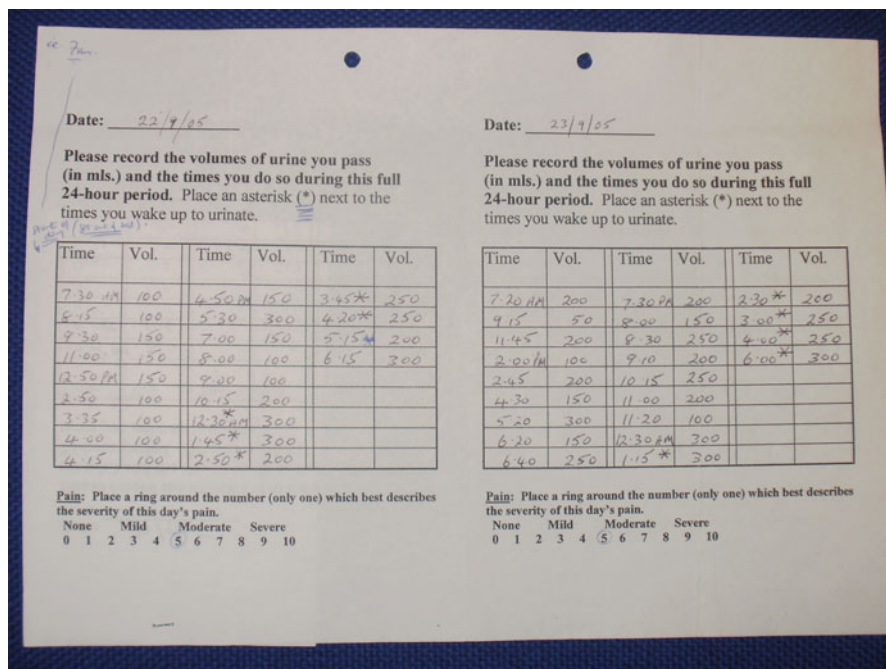 7am
Date: 22/9/05
Please record the volumes of urine you pass
(in mls.) and the times you do so during this full
24-hour period. Place an asterisk (*) next to the
times you wake up to urinate.
Time Vol. Time Vol. Time Vol.
7.30 AM 100 4.50 PM 150 3.45* 250
8.15 100 5.30 300 4.20* 250
9.30 150 7.00 150 5.15* 200
11.00 150 8.00 100 6.15 300
12.50 PM 150 9.00 100
2.50 100 10.15 200
3.35 100 12.30* AM 300
4.00 100 1.45* 300
4.15 100 2.50* 200
Pain: Place a ring around the number (only one) which best describes
the severity of this day's pain.
None Mild Moderate Severe
0 1 2 3 4 5 6 7 8 9 10
Date: 23/9/05
Please record the volumes of urine you pass
(in mls.) and the times you do so during this full
24-hour period. Place an asterisk (*) next to the
times you wake up to urinate.
Time Vol. Time Vol. Time Vol.
7.20 AM 200 7.30 PM 200 2.30* 200
9 15 50 8.00 150 3.00* 250
11.45 200 8.30 250 4.00* 250
2.00 PM 100 9.10 200 6.00* 300
2.45 200 10 15 250
4.30 150 11.00 200
5.20 300 11.20 100
6.20 150 12.30 AM 300
6.40 250 1.15* 300
Pain: Place a ring around the number (only one) which best describes
the severity of this day's pain.
None Mild Moderate Severe
0 1 2 3 4 5 6 7 8 9 10